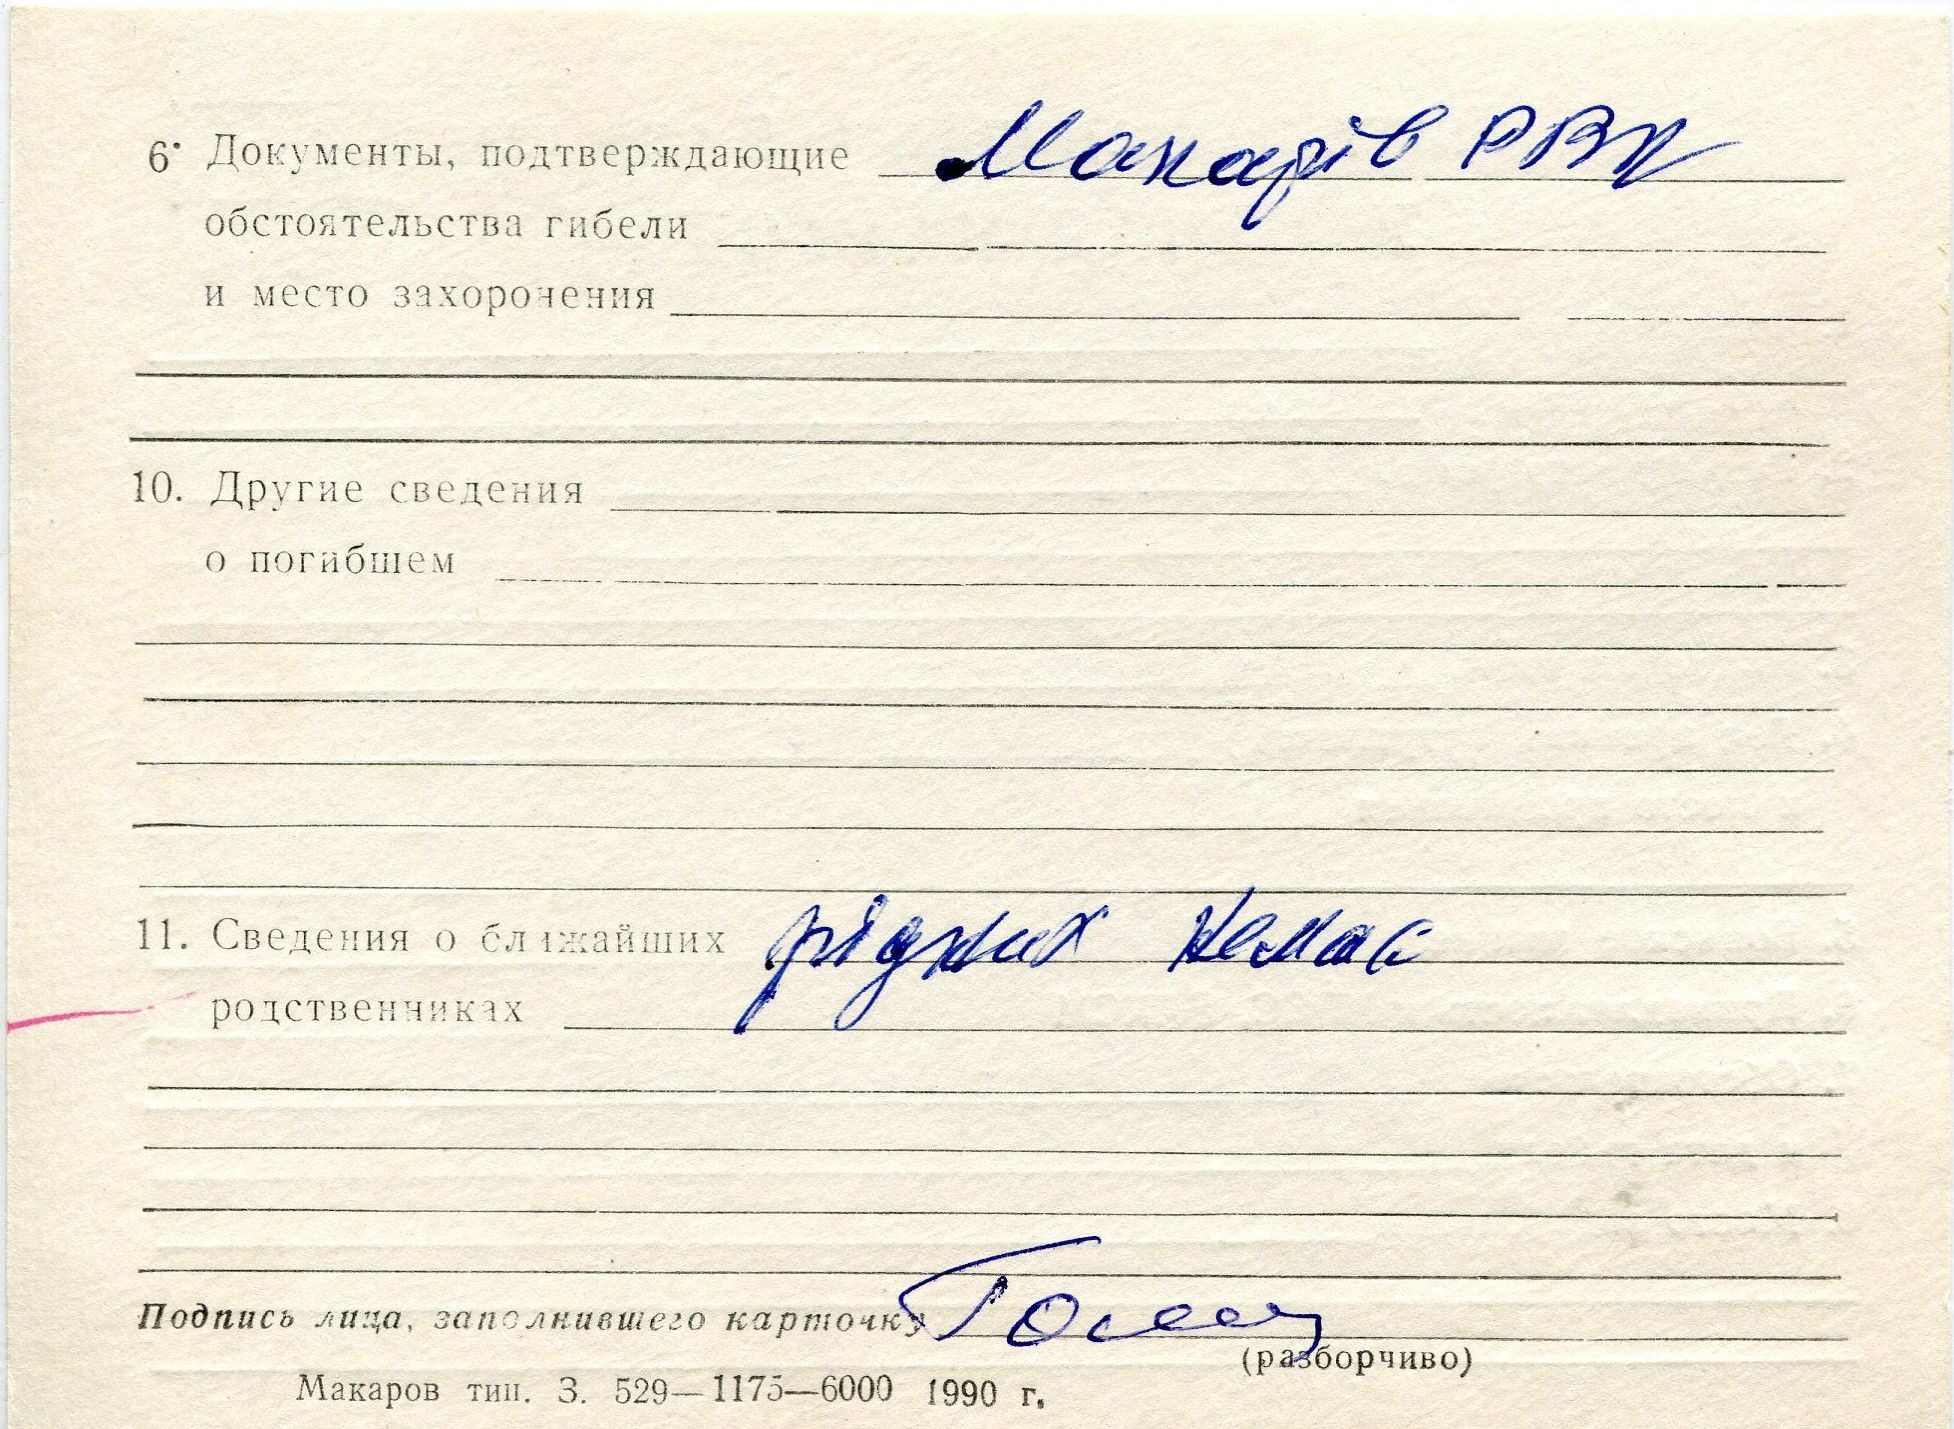 6. Документы, подтверждающие Макарів РВК
обстоятельства гибели
и место захоронения
10. Другие сведения
о погибшем
11. Сведения о ближайших рідних немає
родственниках
Подпись лица, заполнившего карточку
(разборчиво)
Макаров тип. З. 529—1175—6000 1990 г.